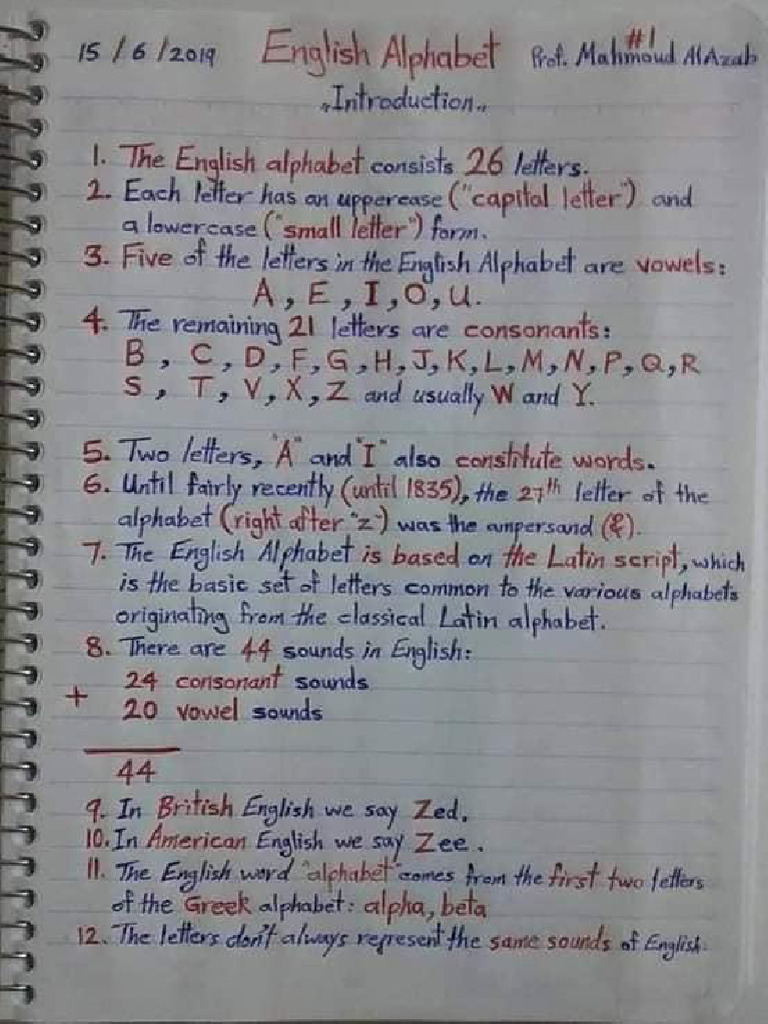 #1
15 / 6 / 2019 English Alphabet Prof. Mahmoud AlAzab
"Introduction"
1. The English alphabet consists 26 letters.
2. Each letter has an uppercase ("capital letter") and
a lowercase ("small letter") form.
3. Five of the letters in the English Alphabet are vowels:
A, E, I, O, U.
4. The remaining 21 letters are consonants:
B, C, D, F, G, H, J, K, L, M, N, P, Q, R
S, T, V, X, Z and usually W and Y.
5. Two letters, "A" and "I" also constitute words.
6. Until fairly recently (until 1835), the 27th letter of the
alphabet (right after "z") was the ampersand (&).
7. The English Alphabet is based on the Latin script, which
is the basic set of letters common to the various alphabets
originating from the classical Latin alphabet.
8. There are 44 sounds in English:
24 consonant sounds
+
20 vowel sounds
44
9. In British English we say Zed.
10. In American English we say Zee.
11. The English word "alphabet" comes from the first two letters
of the Greek alphabet: alpha, beta
12. The letters don't always represent the same sounds of English.